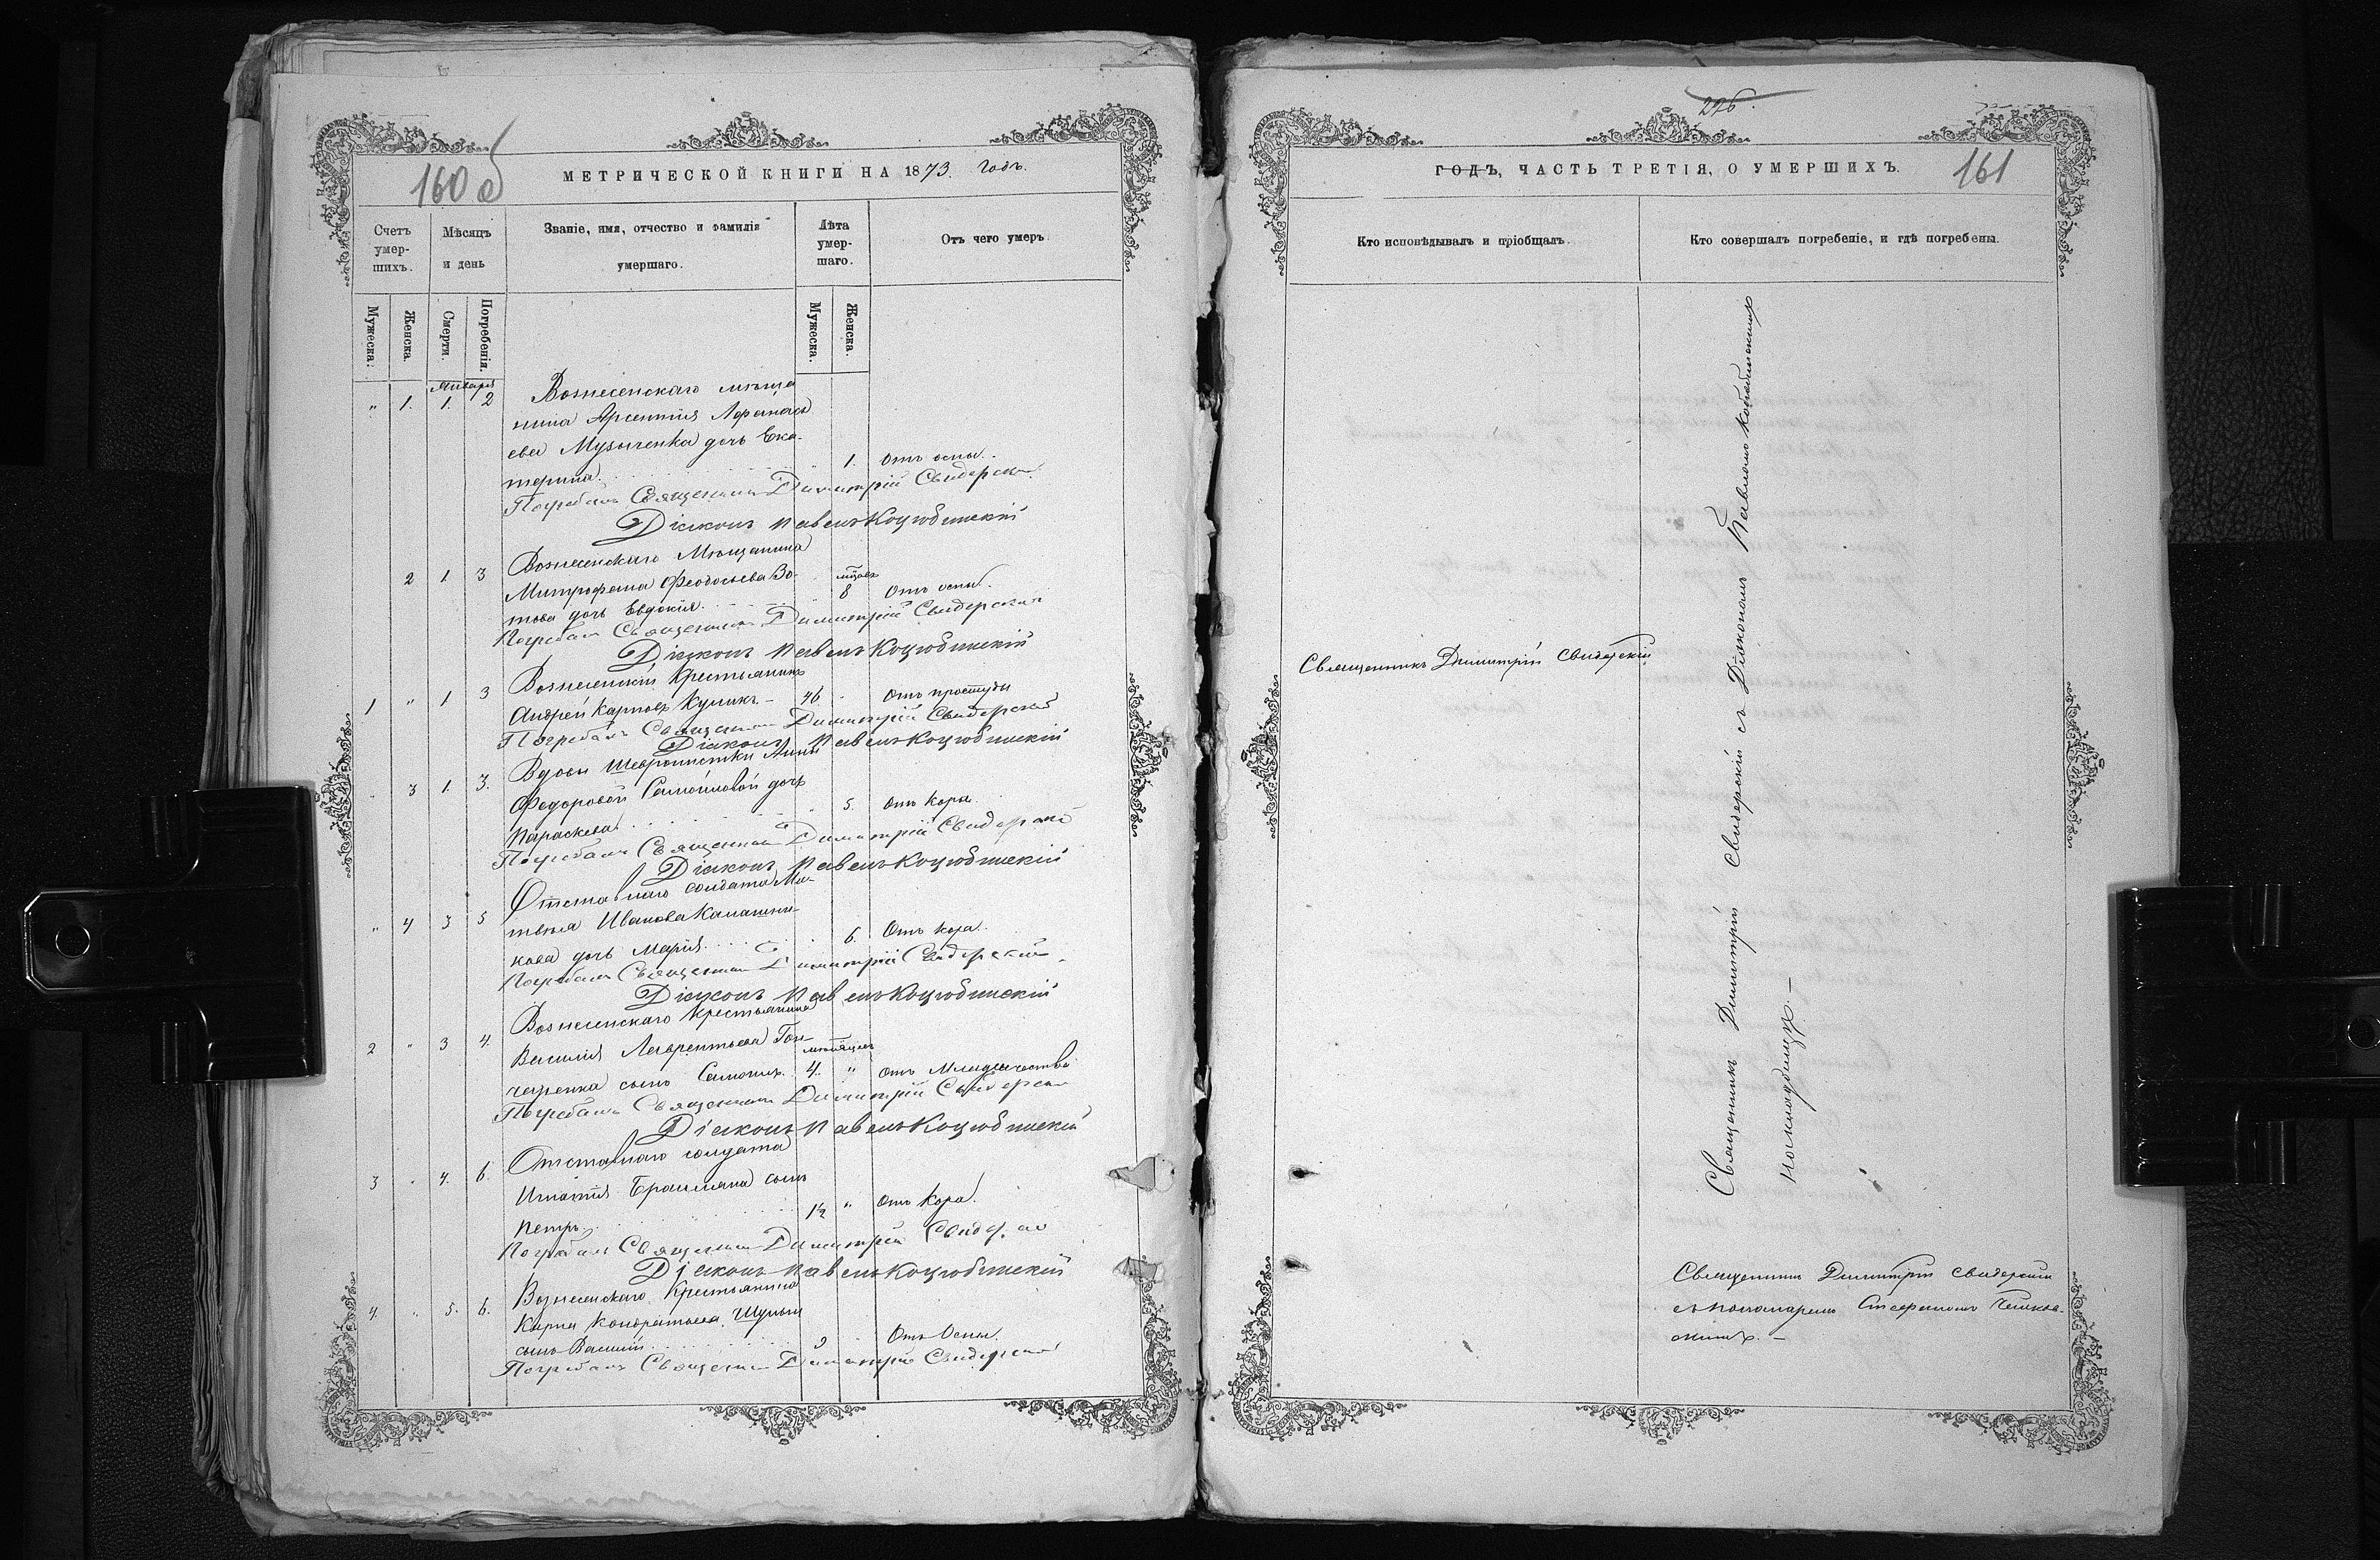 160 об
МЕТРИЧЕСКОЙ КНИГИ НА 1873. годъ.
Счетъ умер-шихъ.
Мѣсяцъ и день
Званіе, имя, отчество и фамилія умершаго.
Лѣта умер-шаго.
Отъ чего умеръ.
Мужеска.
Женска.
Смерти.
Погребенія.
Мужеска.
Женска.
Января
" 1. 1. 2 Вознесенскаго мѣща
нина Арсентія Афанась
ева Музыченка дочь Ека-
терина. 1. Отъ оспы.
Погребалъ Священникъ Димитрій Свидерскій
Діаконъ Павелъ Коцюбинскій
2 1 3 Вознесенскаго Мѣщанина
Митрофана Феодосьева Зо-
това дочь Евдокія. мѣсяцъ 8 Отъ оспы.
Погребалъ Священникъ Димитрій Свидерскій
Діаконъ Павелъ Коцюбинскій
1 " 1 3 Вознесенскій Крестьянинъ
Андрей Карповъ Куликъ - 46 - Отъ простуды
Погребалъ Священникъ Димитрій Свидерскій
Діаконъ Павелъ Коцюбинскій
" 3 1. 3. Вдовы Шевронистки Анны
Федоровой Самойловой дочь
Параскева 5. Отъ кора.
Погребалъ Священникъ Димитрій Свидерскій
Діаконъ Павелъ Коцюбинскій
" 4 3 5 Отставнаго солдата Мат-
твѣя Иванова Калашни-
кова дочь Марія. 6. Отъ кора.
Погребалъ Священникъ Димитрій Свидерскій
Діаконъ Павелъ Коцюбинскій
2 " 3 4. Вознесенскаго Крестьянина
Василія Лаврентьева Гон-
чаренка сынъ Самоилъ. мѣсяцъ 4. " Отъ Младенчества
Погребалъ Священникъ Димитрій Свидерскій
Діаконъ Павелъ Коцюбинскій
3 " 4. 6. Отставнаго солдата
Игнатія сынъ
Петръ 1½ " Отъ Кора.
Погребалъ Священникъ Димитрій Свидерскій
Діаконъ Павелъ Коцюбинскій
4. " 5. 6. Вознесенскаго Крестьянина
Карпа Кондратьева Шульги
сынъ Василій Отъ Оспы.
Погребалъ Священникъ Димитрій Свидерскій
226.
ГОДЪ, ЧАСТЬ ТРЕТІЯ, О УМЕРШИХЪ.
161
Кто исповѣдывалъ и пріобщалъ.
Кто совершалъ погребеніе, и гдѣ погребены.
Священникъ Димитрій Свидерскій
Священникъ Димитрій Свидерскій съ Діакономъ Павломъ Коцюбинскимъ
на кладбищѣ. -
Священникъ Димитрій Свидерскій
съ пономаремъ Стефаномъ